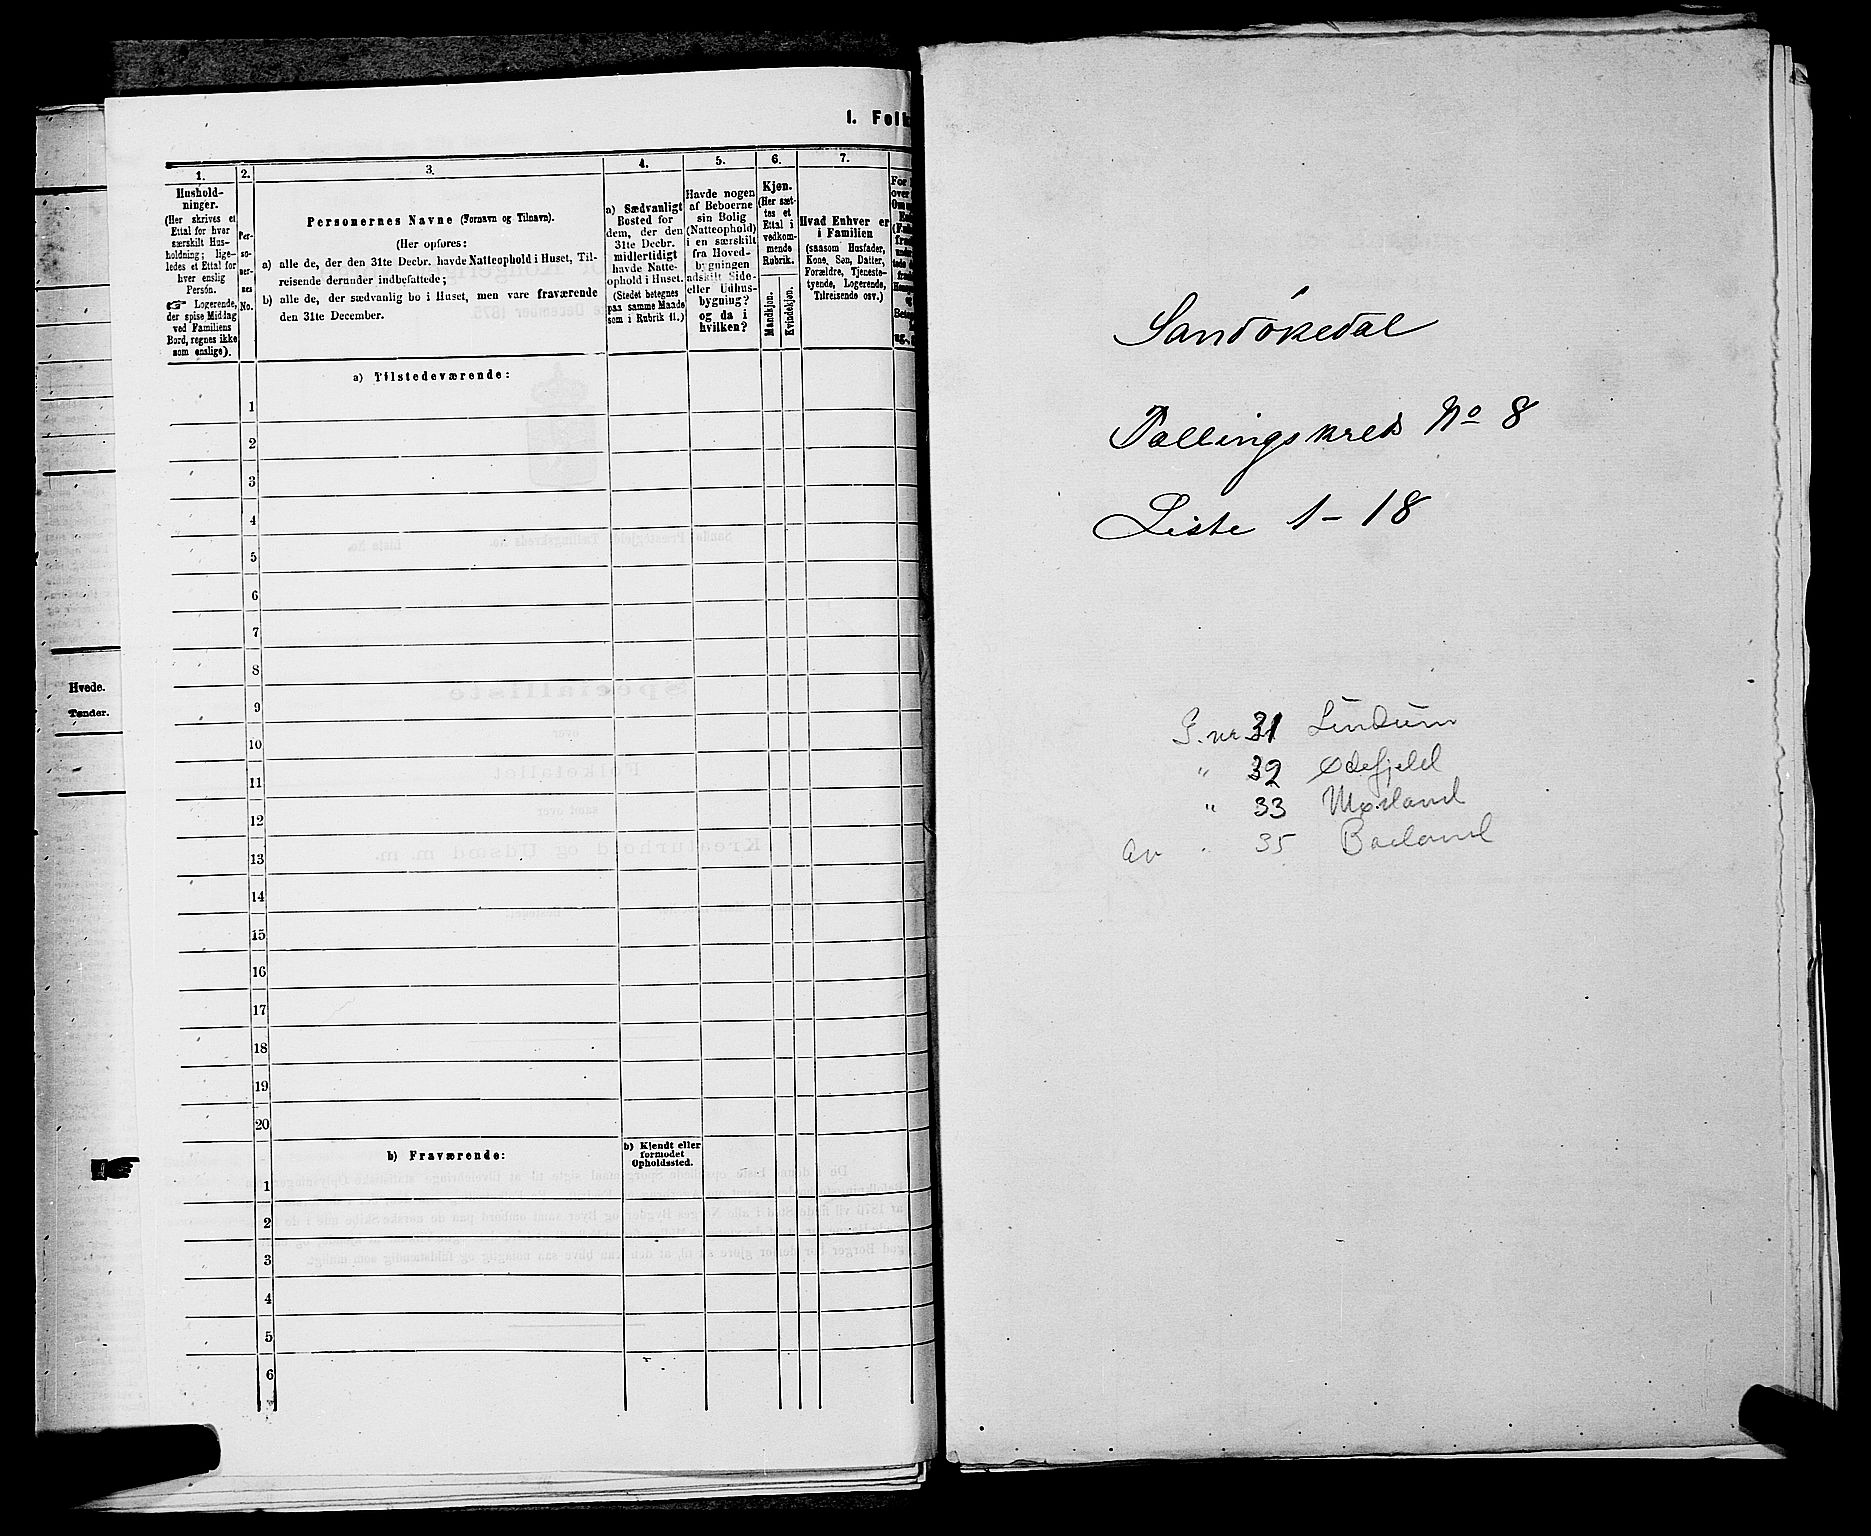 Hvede.
Tønder.
I. Folk
1.
Hushold-
ninger.
(Her skrives et
Ettal for hver
særskilt Hus-
holdning; lige-
ledes et Ettal for
hver enslig
Person.
☞ Logerende,
der spise Middag
ved Familiens
Bord, regnes ikke
som enslige).
2.
Per-
so-
ner-
nes
No.
3.
Personernes Navne (Fornavn og Tilnavn).
(Her opføres:
a) alle de, der den 31te Decbr. havde Natteophold i Huset, Til-
reisende derunder indbefattede;
b) alle de, der sædvanlig bo i Huset, men vare fraværende
den 31te December.
4.
a) Sædvanligt
Bosted for
dem, der den
31te Decbr.
midlertidigt
havde Natte-
ophold i Huset.
(Stedet betegnes
paa samme Maade
som i Rubrik 11.)
5.
Havde nogen
af Beboerne
sin Bolig
(Natteophold)
i en særskilt
fra Hoved-
bygningen
adskilt Side-
eller Udhus-
bygning?
og da i
hvilken?
6.
Kjøn.
(Her sæt-
tes et
Ettal i
vedkom-
mende
Rubrik.
Mandkjøn.
Kvindekjøn.
7.
Hvad Enhver er
i Familien
(saasom Husfader,
Kone, Søn, Datter,
Forældre, Tjeneste-
tyende, Logerende,
Tilreisende osv.)
For
over
a) Tilstedeværende:
1
2
3
4
5
6
7
8
9
10
11
12
13
14
15
16
17
18
19
20
b) Fraværende:
b) Kjendt eller
formodet
Opholdssted.
1
2
3
4
5
6
Sandøkedal
Tællingskreds No 8
Liste 1 – 18
G. nr 31 Lindum
" 32 Ødefjeld
" 33 Mørland
av " 35 Barland